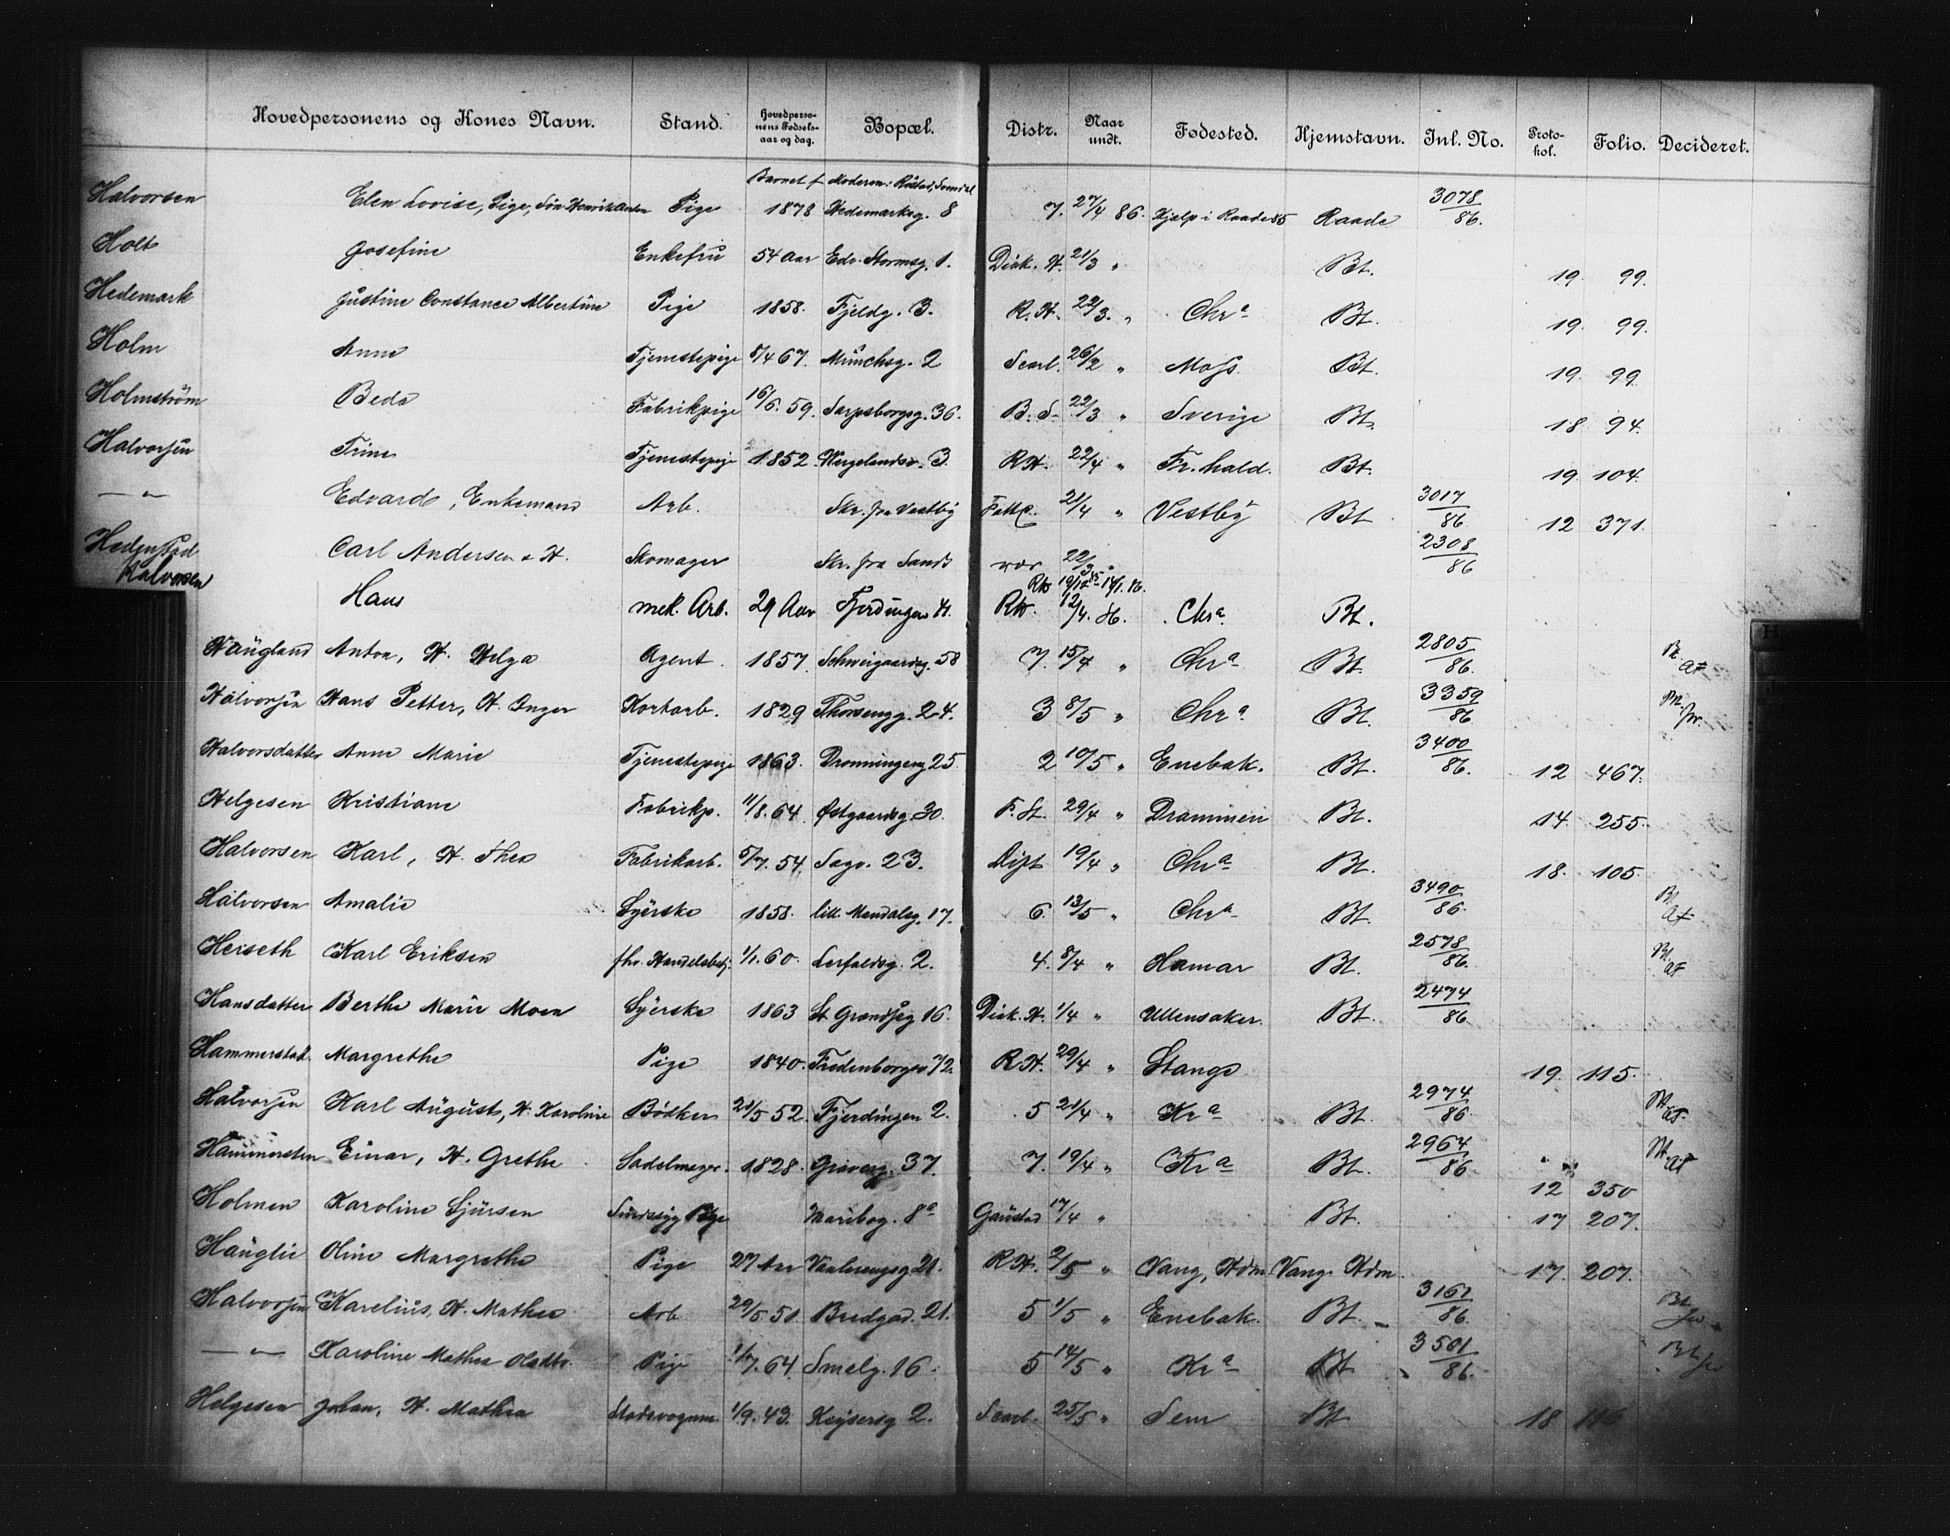 Hovedpersonens og Kones Navn. Stand. Hovedpersonens Fødselsaar og dag. Bopæl. Distr. Naar undt. Fødested. Hjemstavn. Inl. No. Protokol. Folio. Decideret.
Barnet f Moderen:
Halvorsen Elen Lovise, Pige, Søn Henrik Anton Pige 1878 Hedemarksg. 8 7. 27/4 86. Hjælp i Raade 85 Raade 3078/86.
Holt Josefine Enkefru 54 Aar Edv. Stormsg. 1. Diak. H. 21/3 " Bt. 19 99.
Hedemark Justine Constance Albertine Pige 1858. Fjeldg. 3. R.H. 22/3. " Chr a Bt. 19 99.
Holm Anne Tjenestepige 5/4 67. Munchsg. 2 Scarl. 26/2 " Moss. Bt. 19. 99
Holmstrøm Beda Fabrikpige 16/6. 59. Sarpsborgg. 36. B. S. 22/3 " Sverige Bt. 18 94.
Halvorsen Trine Tjenestepige 1852. Wergelandsv. 3. RH. 22/4 " Fr. hald. Bt. 19 104.
— " — Edvard, Enkemand Arb. Skr. fra Vestby 21/4 " Vestby Bt 3017/86 12 371.
Hedenstad Carl Andersen & H. Skomager Skr. fra Sande 22/3 " 2308/86
Halvorsen Hans mek. Arb. 29 Aar Fjerdingen 41. RH. 12/4. 86. Chr a. Bt.
Haugland Anton, H. Helga Agent. 1857. Schweigaardsg. 58 7. 15/4 " Chr a Bt. 2805/86. Bt. AF
Halvorsen Hans Petter, H. Inger Kortarb. 1829 Thorsengg. 24. 3 8/5 " Chr a. Bt. 3359/86 Bt.
Halvorsdatter Anne Marie Tjenestepige 1863. Dronningeng 25. 2 10/5 " Enebak. Bt. 3400/86. 12 467.
Helgesen Kristiane Fabrikp. 11/8. 64. Østgaardsg. 30. F. St. 29/4 " Drammen Bt. 14. 255.
Halvorsen Karl, H. Thea Fabrikarb. 5/7. 54. Sagv. 23. Dipt 19/4 " Chr a Bt. 18. 105
Halvorsen Amalie Syerske 1858. lill. Mandalsg. 17. 6. 13/5 " Chr a Bt. 3490/86. Bt. AF
Heiseth Karl Eriksen fhv. Handelsbetj. 1/1. 60. Lerfaldsg. 2. 4. 8/4 " Hamar Bt. 2578/86. Bt. AF
Hansdatter Berthe Marie Moen Syerske 1863 St. Grændseg 16. Diak. H. 1/4 " Ullensaker. Bt. 2474/86
Hammerstad. Margrethe Pige 1840. Fredenborgv. 72. R.H. 29/4 " Stange 19. 115.
Halvorsen Karl August, H. Karoline Bødker 21/5 52. Fjerdingen 2. 5 21/4 " Kr a Bt. 2974/86 Bt. AF.
Hammersten Einar, H. Grethe Sadelmager. 1828. Grønerg. 37. 7. 19/4 " Kr a Bt. 2964/86. Bt. AF
12 350
Holmen Karoline Sjursen Sindssyg Pige Maribog. 8 a Gaustad 17/4 " Bt. 17 207.
Hauglie Oline Margrethe Pige 27 Aar Vaalerengsg 21. R.H. 2/5 " Vang, Hdm. Vang. Hdm 17. 207.
Halvorsen Karelius, H. Mathea Arb 29/5. 51. Bredgad. 21. 5 1/5 " Enebak. Bt. 3167/86. Bt.
— " — Karoline Mathea Olsdtr. Pige 1/7. 64. Smelg. 16. 5 14/5 " Kr a Bt 3501/86. Bt
Helgesen Johan, H. Mathea Stadsvognm. 1/9. 43. Keysersg 2. Scarl. 25/5 " Sem Bt 18 116